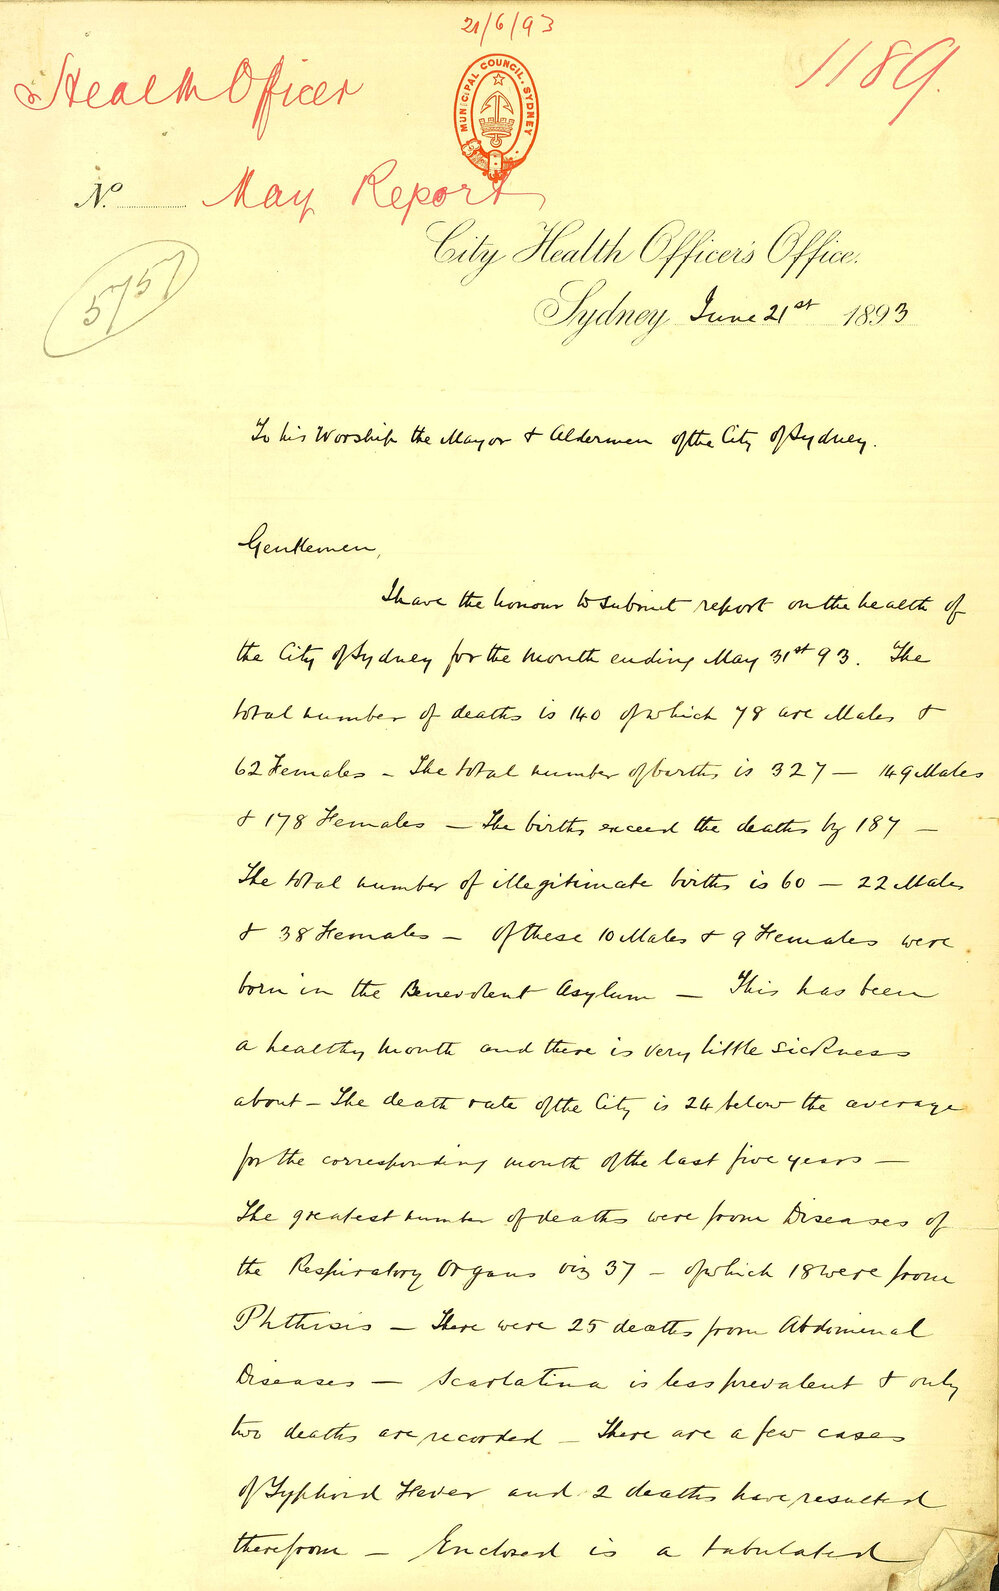 21/6/93
Health Officer
1189.
MUNICIPAL COUNCIL. SYDNEY
No. May Report
5757
City Health Officer's Office.
Sydney June 21st 1893
To his Worship the Mayor & Aldermen of the City of Sydney.
Gentlemen,
I have the honour to submit report on the health of
the City of Sydney for the month ending May 31st 93. The
total number of deaths is 140 of which 78 are Males &
62 Females – The total number of births is 327 – 149 Males
& 178 Females – The births exceed the deaths by 187 –
The total number of illegitimate births is 60 – 22 Males
& 38 Females – Of these 10 Males & 9 Females were
born in the Benevolent Asylum – This has been
a healthy month and there is very little sickness
about – The death rate of the City is 24 below the average
for the corresponding month of the last five years –
The greatest number of deaths were from Diseases of
the Respiratory Organs viz 37 – of which 18 were from
Phthisis – There were 25 deaths from Abdominal
Diseases – Scarlatina is less prevalent & only
two deaths are recorded – There are a few cases
of Typhoid Fever and 2 deaths have resulted
therefrom – Enclosed is a tabulated